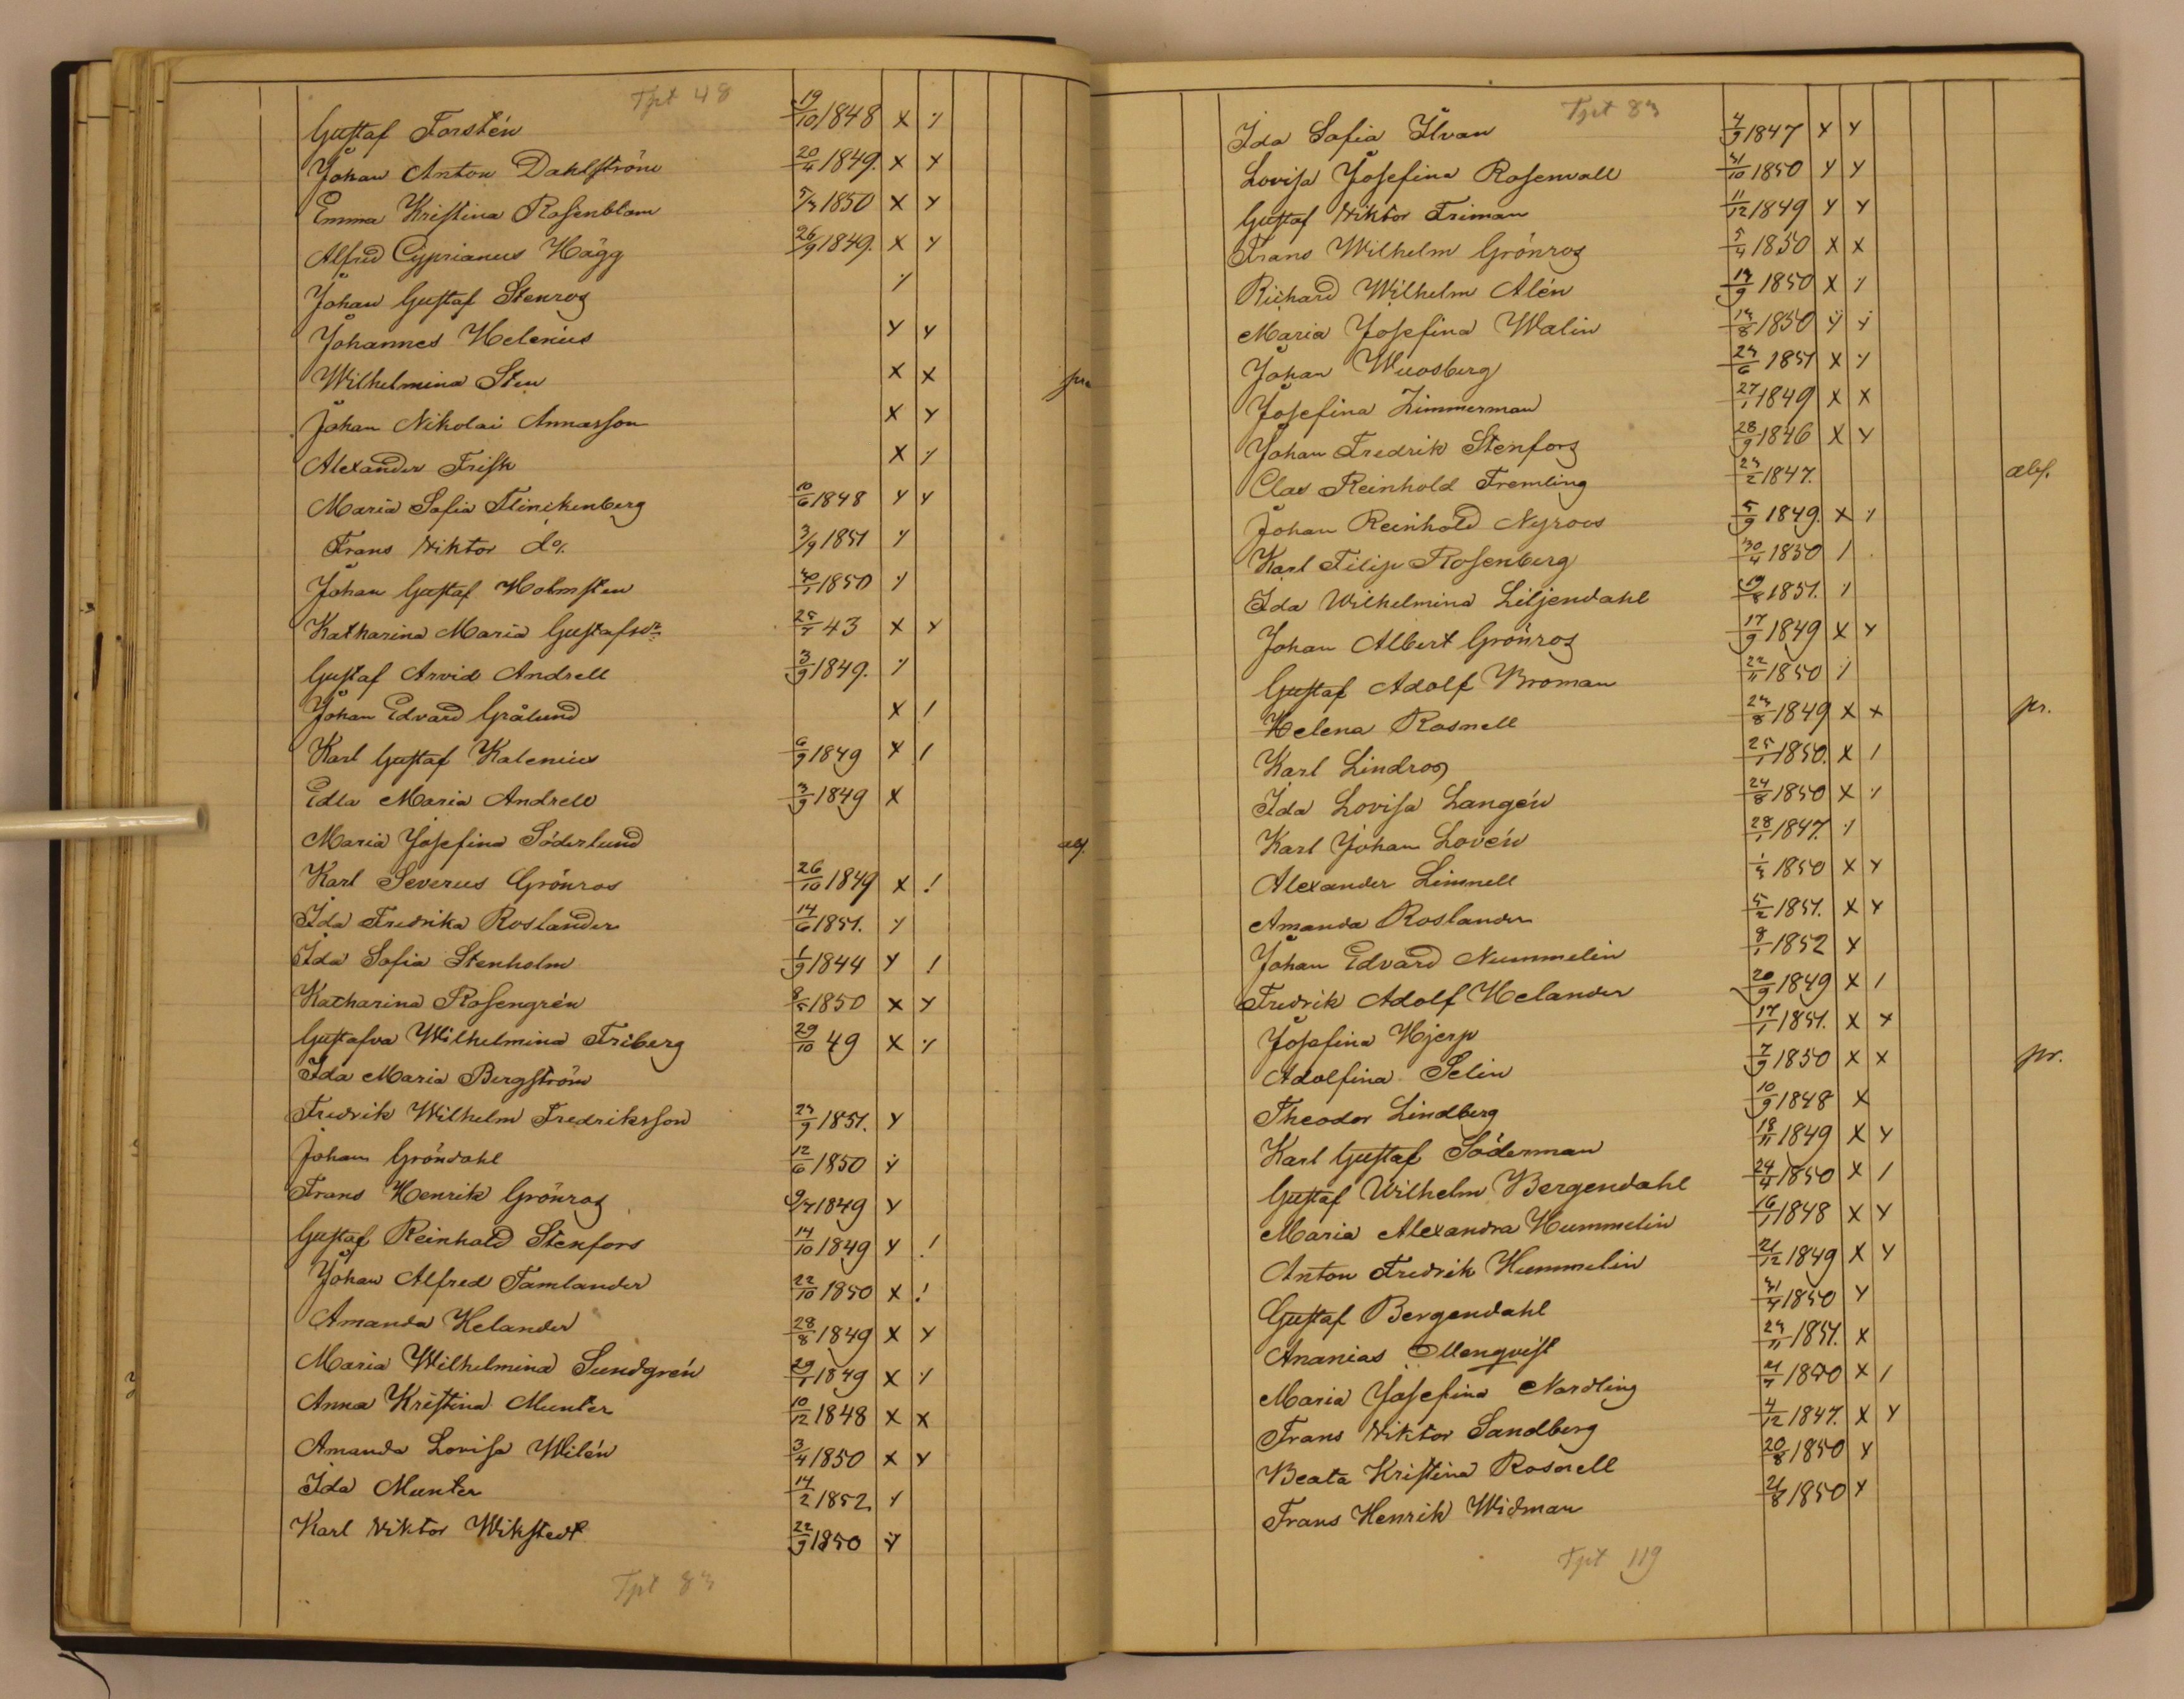 Tpt 48
Gustaf Forstén 19/10 1848 x ·/.
Johan Anton Dahlström 20/4 1849. x x
Emma Kristina Rosenblom 5/3 1850 x x
Alfred Cyprianus Hägg 26/9 1849. x x
Johan Gustaf Stenros ·/.
Johannes Helenius x x
Wilhelmina Sten x x pr.
Johan Nikolai Annasson x x
Alexander Frisk x ·/.
Maria Sofia Flinckenberg 10/6 1848 x x
Frans Viktor d:o 3/9 1851 ·/.
Johan Gustaf Holmsten 1850 ·/.
Katharina Maria Gustafsdr 43 x x
Gustaf Arvid Andrell 3/9 1849. ·/.
Johan Edvard Grålund x /
Karl Gustaf Kalenius 6/9 1849 x /
Edla Maria Andrell 3/9 1849 x
Maria Josefina Söderlund
Karl Severus Grönros 26/10 1849 x !
Ida Fredrika Roslander 14/6 1851. ·/.
Ida Sofia Stenholm 1/9 1844 x !
Katharina Rosengrén 8/5 1850 x x
Gustafva Wilhelmina Friberg 29/10 49 x ·/.
Ida Maria Bergström
Fredrik Wilhelm Fredriksson 23/9 1851. x
Johan Gröndahl 12/6 1850 x
Frans Henrik Grönros 9/7 1849 x
Gustaf Reinhold Stenfors 14/10 1849 x !
Johan Alfred Tamlander 22/10 1850 x !
Amanda Helander 28/8 1849 x x
Maria Wilhelmina Sundgrén 29/1 1849 x ·/.
Anna Kristina Munter 10/12 1848 x x
Amanda Lovisa Wilén 3/4 1850 x x
Ida Munter 14/2 1852 ·/.
Karl Viktor Wikstedt 22/9 1850 x
Tpt 83
Tpt 83
Ida Sofia Ilvan 4/9 1847 x x
Lovisa Josefina Rosenvall 31/10 1850 x x
Gustaf Viktor Friman 11/12 1849 x x
Frans Wilhelm Grönros 5/4 1850 x x
Richard Wilhelm Alén 13/9 1850 x ·/.
Maria Josefina Walin 13/8 1850 x x
Johan Wuosberg 23/6 1851 x ·/.
Josefina Zimmerman 27/1 1849 x x
Johan Fredrik Stenfors 28/9 1846 x x
Clas Reinhold Fremling 23/2 1847. abs.
Johan Reinhold Nyroos 5/9 1849. x ·/.
Karl Filip Rosenberg 30/4 1850 /
Ida Wilhelmina Liljendahl 19/8 1851. ·/.
Johan Albert Grönros 17/9 1849 x x
Gustaf Adolf Broman 22/11 1850 ·/.
Helena Rosnell 23/8 1849 x x pr.
Karl Lindros 25/1 1850. x /
Ida Lovisa Langén 24/8 1850 x ·/.
Karl Johan Lovén 28/1 1847. ·/.
Alexander Limnell 1850 x x
Amanda Roslander 5/2 1851. x x
Johan Edvard Nummelin 8/1 1852 x
Fredrik Adolf Helander 20/9 1849 x /
Josefina Hjerp 17/1 1851. x x
Adolfina Selin 7/9 1850 x x pr.
Theodor Lindberg 10/9 1848 x
Karl Gustaf Söderman 18/11 1849 x x
Gustaf Wilhelm Bergendahl 24/4 1850 x /
Maria Alexandra Hummelin 16/1 1848 x x
Anton Fredrik Hummelin 21/12 1849 x x
Gustaf Bergendahl 1850 x
Ananias Ellenqvist 23/11 1851. x
Maria Josefina Nordling 1850 x /
Frans Viktor Sandberg 4/12 1847. x x
Beata Kristina Rosnell 20/8 1850 x
Frans Henrik Widman 21/8 1850 x
Tpt 119